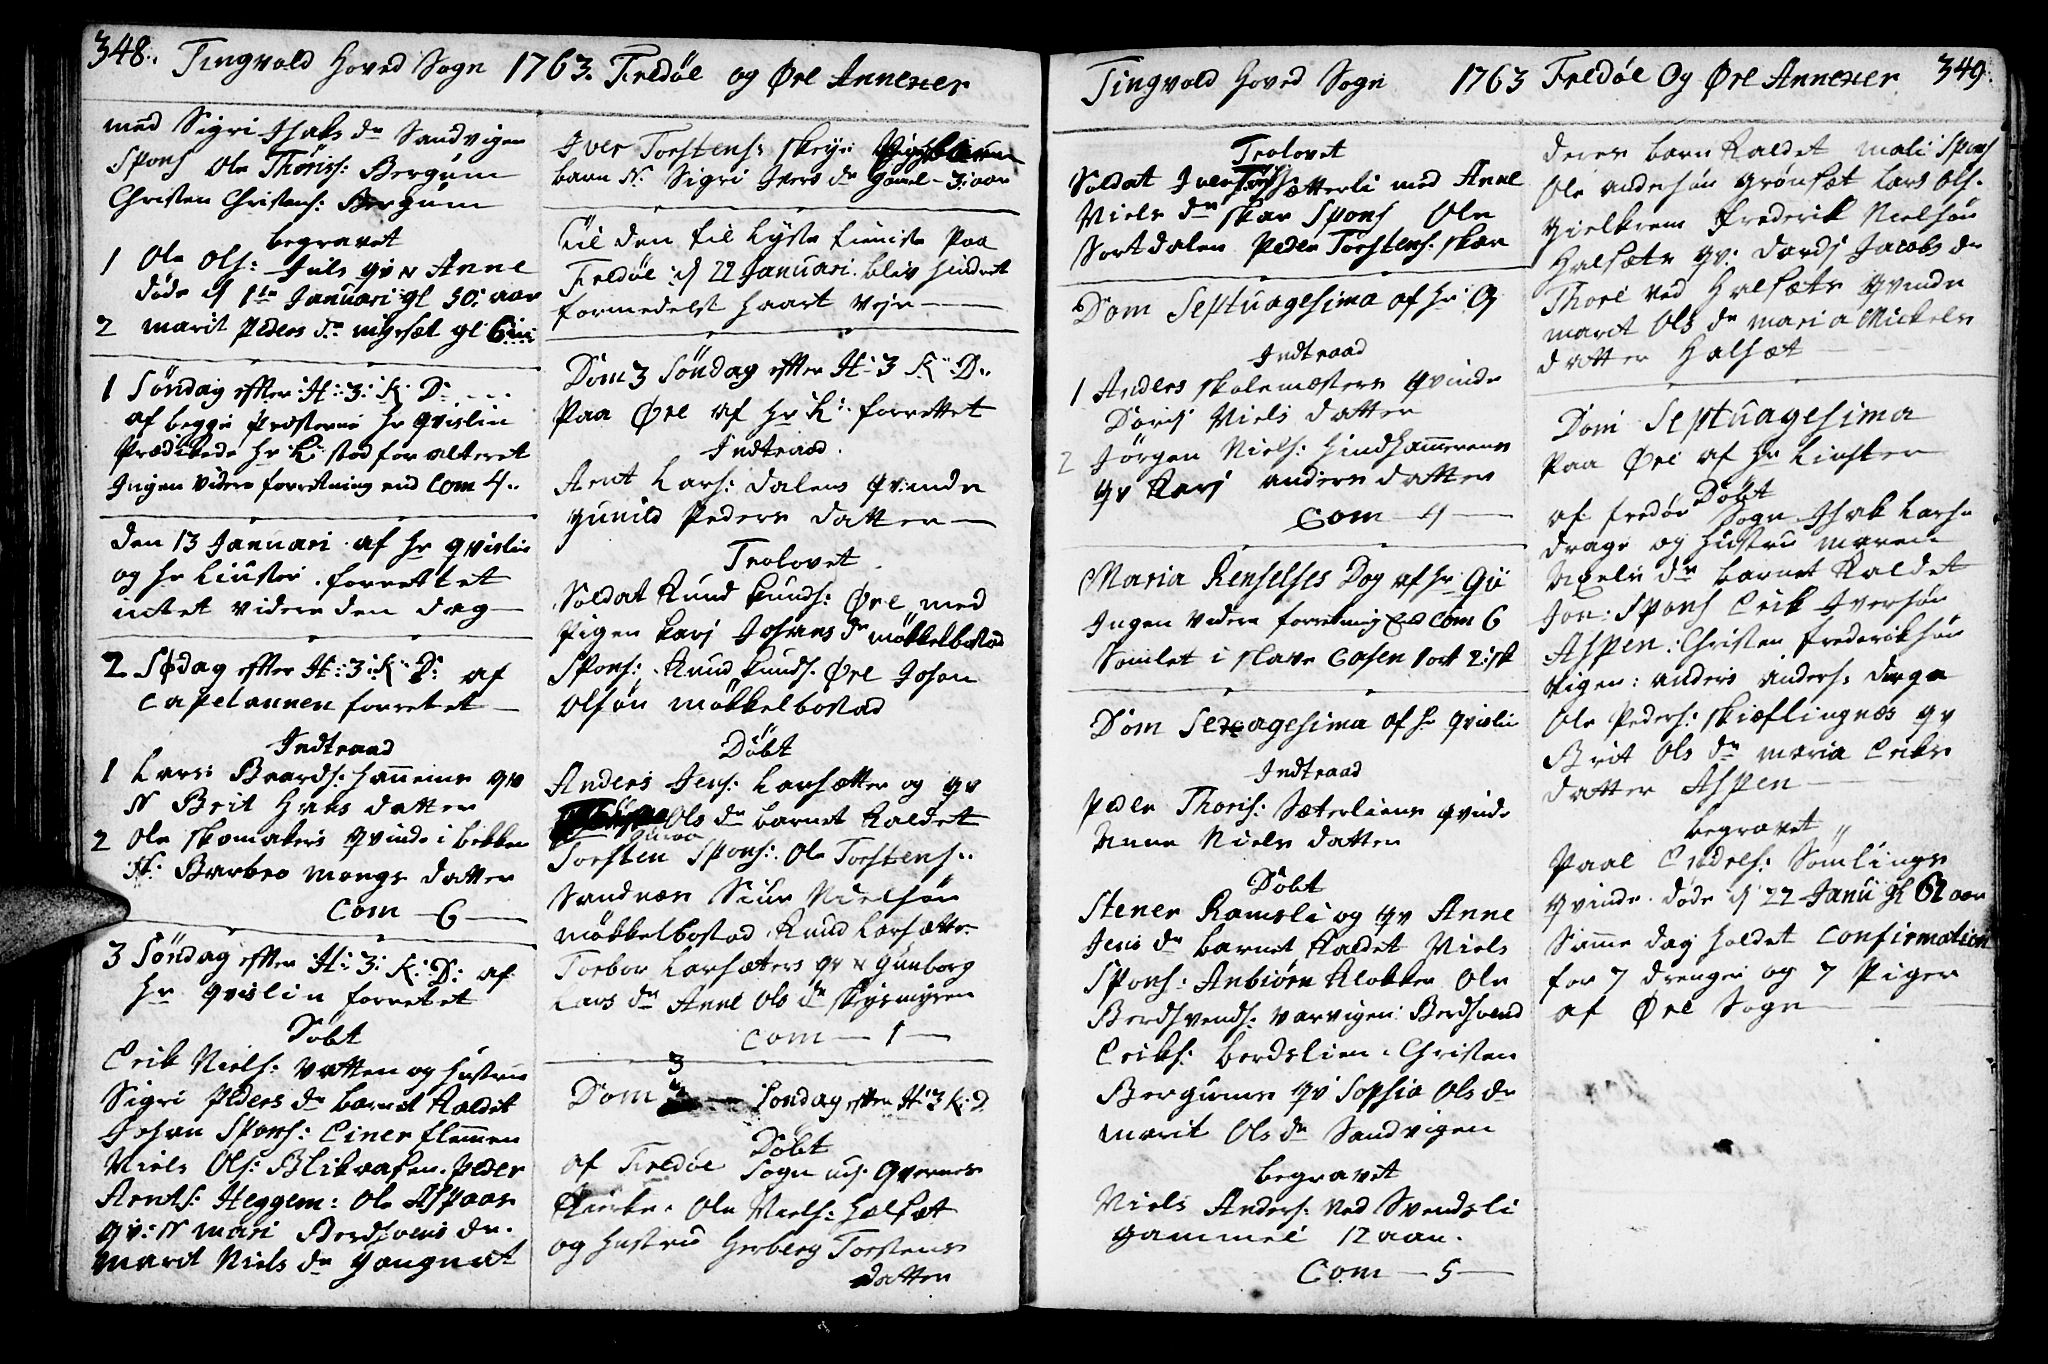 348. Tingvold Hoved Sogn 1763. Fredøe og Øre Annexer
med Sigri Isaks dr Sandvigen
Spons Ole Thöriss: Bergum
Christen Christens: Bergum
begravet
1 Ole Ols: Juls qv N Anne
döde d 1te Januari gl 50: aar
2 marit Peders dr myrsæt gl
1 Söndag efter H: 3: K: D:
af begge Præsterne Hr Qvislin
Prædikede Hr Li: stod for alteret
Ingen videre forretning end Com 4..
den 13 Januari af Hr Qvislin
og Hr Linster. forrettet
intet videre den dag
2 Sødag efter H: 3: K: D: af
Capelannen forretet
Indtraad
1 Lars Baards: Hanems qv
N Brit Haks datter
2 Ole Skomakers Qvinde i bekken
N: Barbro Mongs datter
Com 6
3 Söndag efter H: 3: K: D: af
Hr Qvislin forretet
Döbt
Erik Niels: Vatten og Hustru
Sigri Peders dr barnet Kaldet
Johan Spons: Einer flemmen
Niels Ols: Blikaasen. Peder
Arnts: Heggem: Ole Aspaas
qv: N mari Berdsvens dr.
Marit Niels dr Gangnæt
Iver Torstens: Skrije
barn N: Sigri Ivers dr Gamel 3: aar
Til den til lyste tieniste Paa
Fredøe: d 22 Januari. blev hindret
formedelst Haart Vejr
Dom 3 Söndag efter H: 3 K: D:
Paa Øre af Hr Li: forrettet
Indtraad.
Arnt Lars: Dalens Qvinde
Gunild Peders datter
Trolovet
Soldat Knud Knuds: Øre med
Pigen Karj Johans dr möklebostad
Spons: Knud Knuds. Øre Johan
Olsön mökkelbostad
Döbt
Anders Jens: Larsætter og qv
Guroe Ols dr barnet Kaldet
Torsten Spons: Ole Torstens:
Sandnæs Siur Nielsön
mökkelbostad Knud Larsætter
Torbor Larsæters qv N Gunborg
Lars dr Anne Ols dr Skrijsmyren
Com 1
Dom 3 Söndag efter H: 3 K: D
Döbt
af Fredøe Sogn udj Qvernes
Kierke. Ole Niels: Halsæt
og Hustru Herborg Torstens
datter
Tingvold Hoved Sogn 1763 Fredøe Og Øre Annexer 349.
Trolovet
Soldat Iver Sætterli med Anne
Niels dr Skar Spons Ole
Sortdalen Peder Torstens: Skar
Dom Septuagesima af Hr Q
Indtraad
1 Anders Skolemesters Qvinde
Doris Niels datter
2 Jörgen Niels: Hindhammerens
qv Karj anders datter
Com 4
Maria Renselses Dag af Hr Qu
Ingen videre forretning End Com 6
Samlet i slave Casen 1 ort 2: sk
Dom Sexagesima af Hr Qvislin
Indtraad
Peder Thoris: Sæterliens Qvinde
Anne Niels datter
Döbt
Stener Ramsli og qv Anne
Jens dr barnet Kaldet Niels
Spons: Anbiörn Klokker Ole
Berdsvends: Varvigen: Berdsvend
Eriks: berdslien. Christen
Bergums qv Sophia Ols dr
Marit Ols dr Sandvigen
begravet
Niels Anders: Ved Svendsli
gammel 12 aar.
Com 5
deres barn Kaldet mali Spons
Ole andersön Grönsæt Lars Ols.
Gielkrem frederik Nielsön
Halsæts qv: Dordi Jacobs dr
Thore ved Halsæts Qvinde
marit Ols dr maria Mickels
datter Halsæt
Dom Septuagesima
Paa Øre af Hr Linster
Döbt
af fredöe Sogn Isak Lars:
drage og Hustru Maren
Niels dr barnet Kaldet
Jon. Spons Erik Iversön
Aspen: Christen frederiksön
Vigen: anders anders: Drage
Ole Peders: Skieflingnæs qv
Brit Ols dr maria Eriks
datter Aspen
begravet
Paal Endres: Sömlings
Qvinde döde d 22 Janu gl 62 aar
Samme dag holdet Confirmation
for 7 drenge og 7 Piger
af Øre Sogn